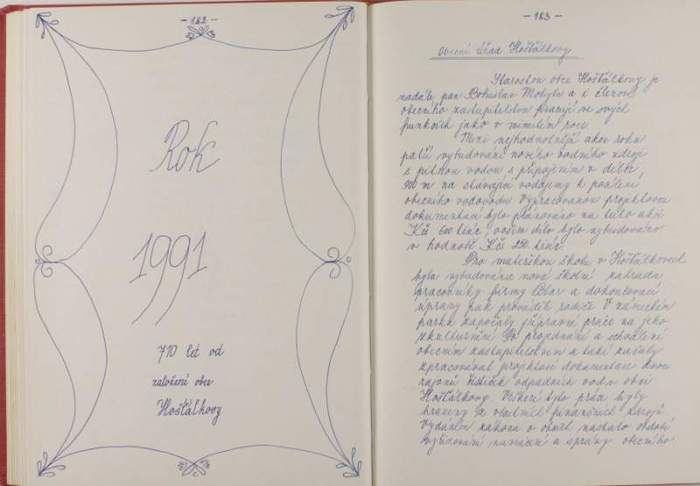 - 182 -
Rok
1991
710 let od
založení obce
Hošťálkovy
- 183 -
Obecní úřad Hošťálkovy
Starostou obce Hošťálkovy je
nadále pan Bohuslav a s členové
obecního zastupitelstva pracují ve svých
funkcích jako v minulém roce.
Mezi nejhodnotnější akce roku
patří vybudování nového vodního zdroje
s pitnou vodou s připojením v délce
900 m na stávající vodojemy k posílení
obecního vodovodu. Vypracovanou projektovou
dokumentací bylo plánováno na tuto akci
Kčs 600 tisíc, ovšem dílo bylo vybudováno
v hodnotě Kčs 250 tisíc.
Pro mateřskou školu v Hošťálkovech
byla vybudována nová školní zahrada
pracovníky firmy a dokončovací
úpravy pak provedli rodiče. V zámeckém
parku započaly přípravné práce na jeho
zkulturnění. Po projednání a schválení
obecním zastupitelstvem se také začaly
zpracovávat projektové dokumentace
čističek odpadních vod obce
Hošťálkovy. Veškeré tyto práce byly
hrazeny z obecních finančních zdrojů.
Vydáním zákona o obcích nastalo období
vyřizování navrácení a správy obecního